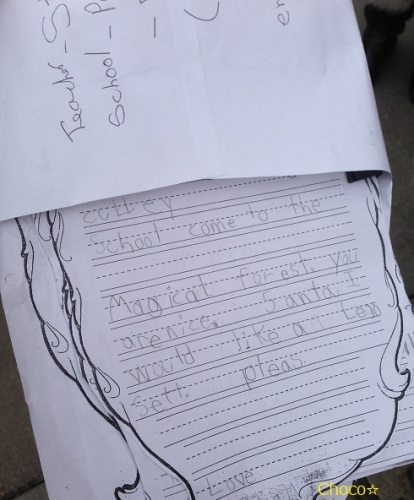 Teacher - S
School - P
-
(
en
cottey
School come to the
Magical forest. you
are nice. Santa. I
would like a Lego
Sett pleas
Love
Choco☆